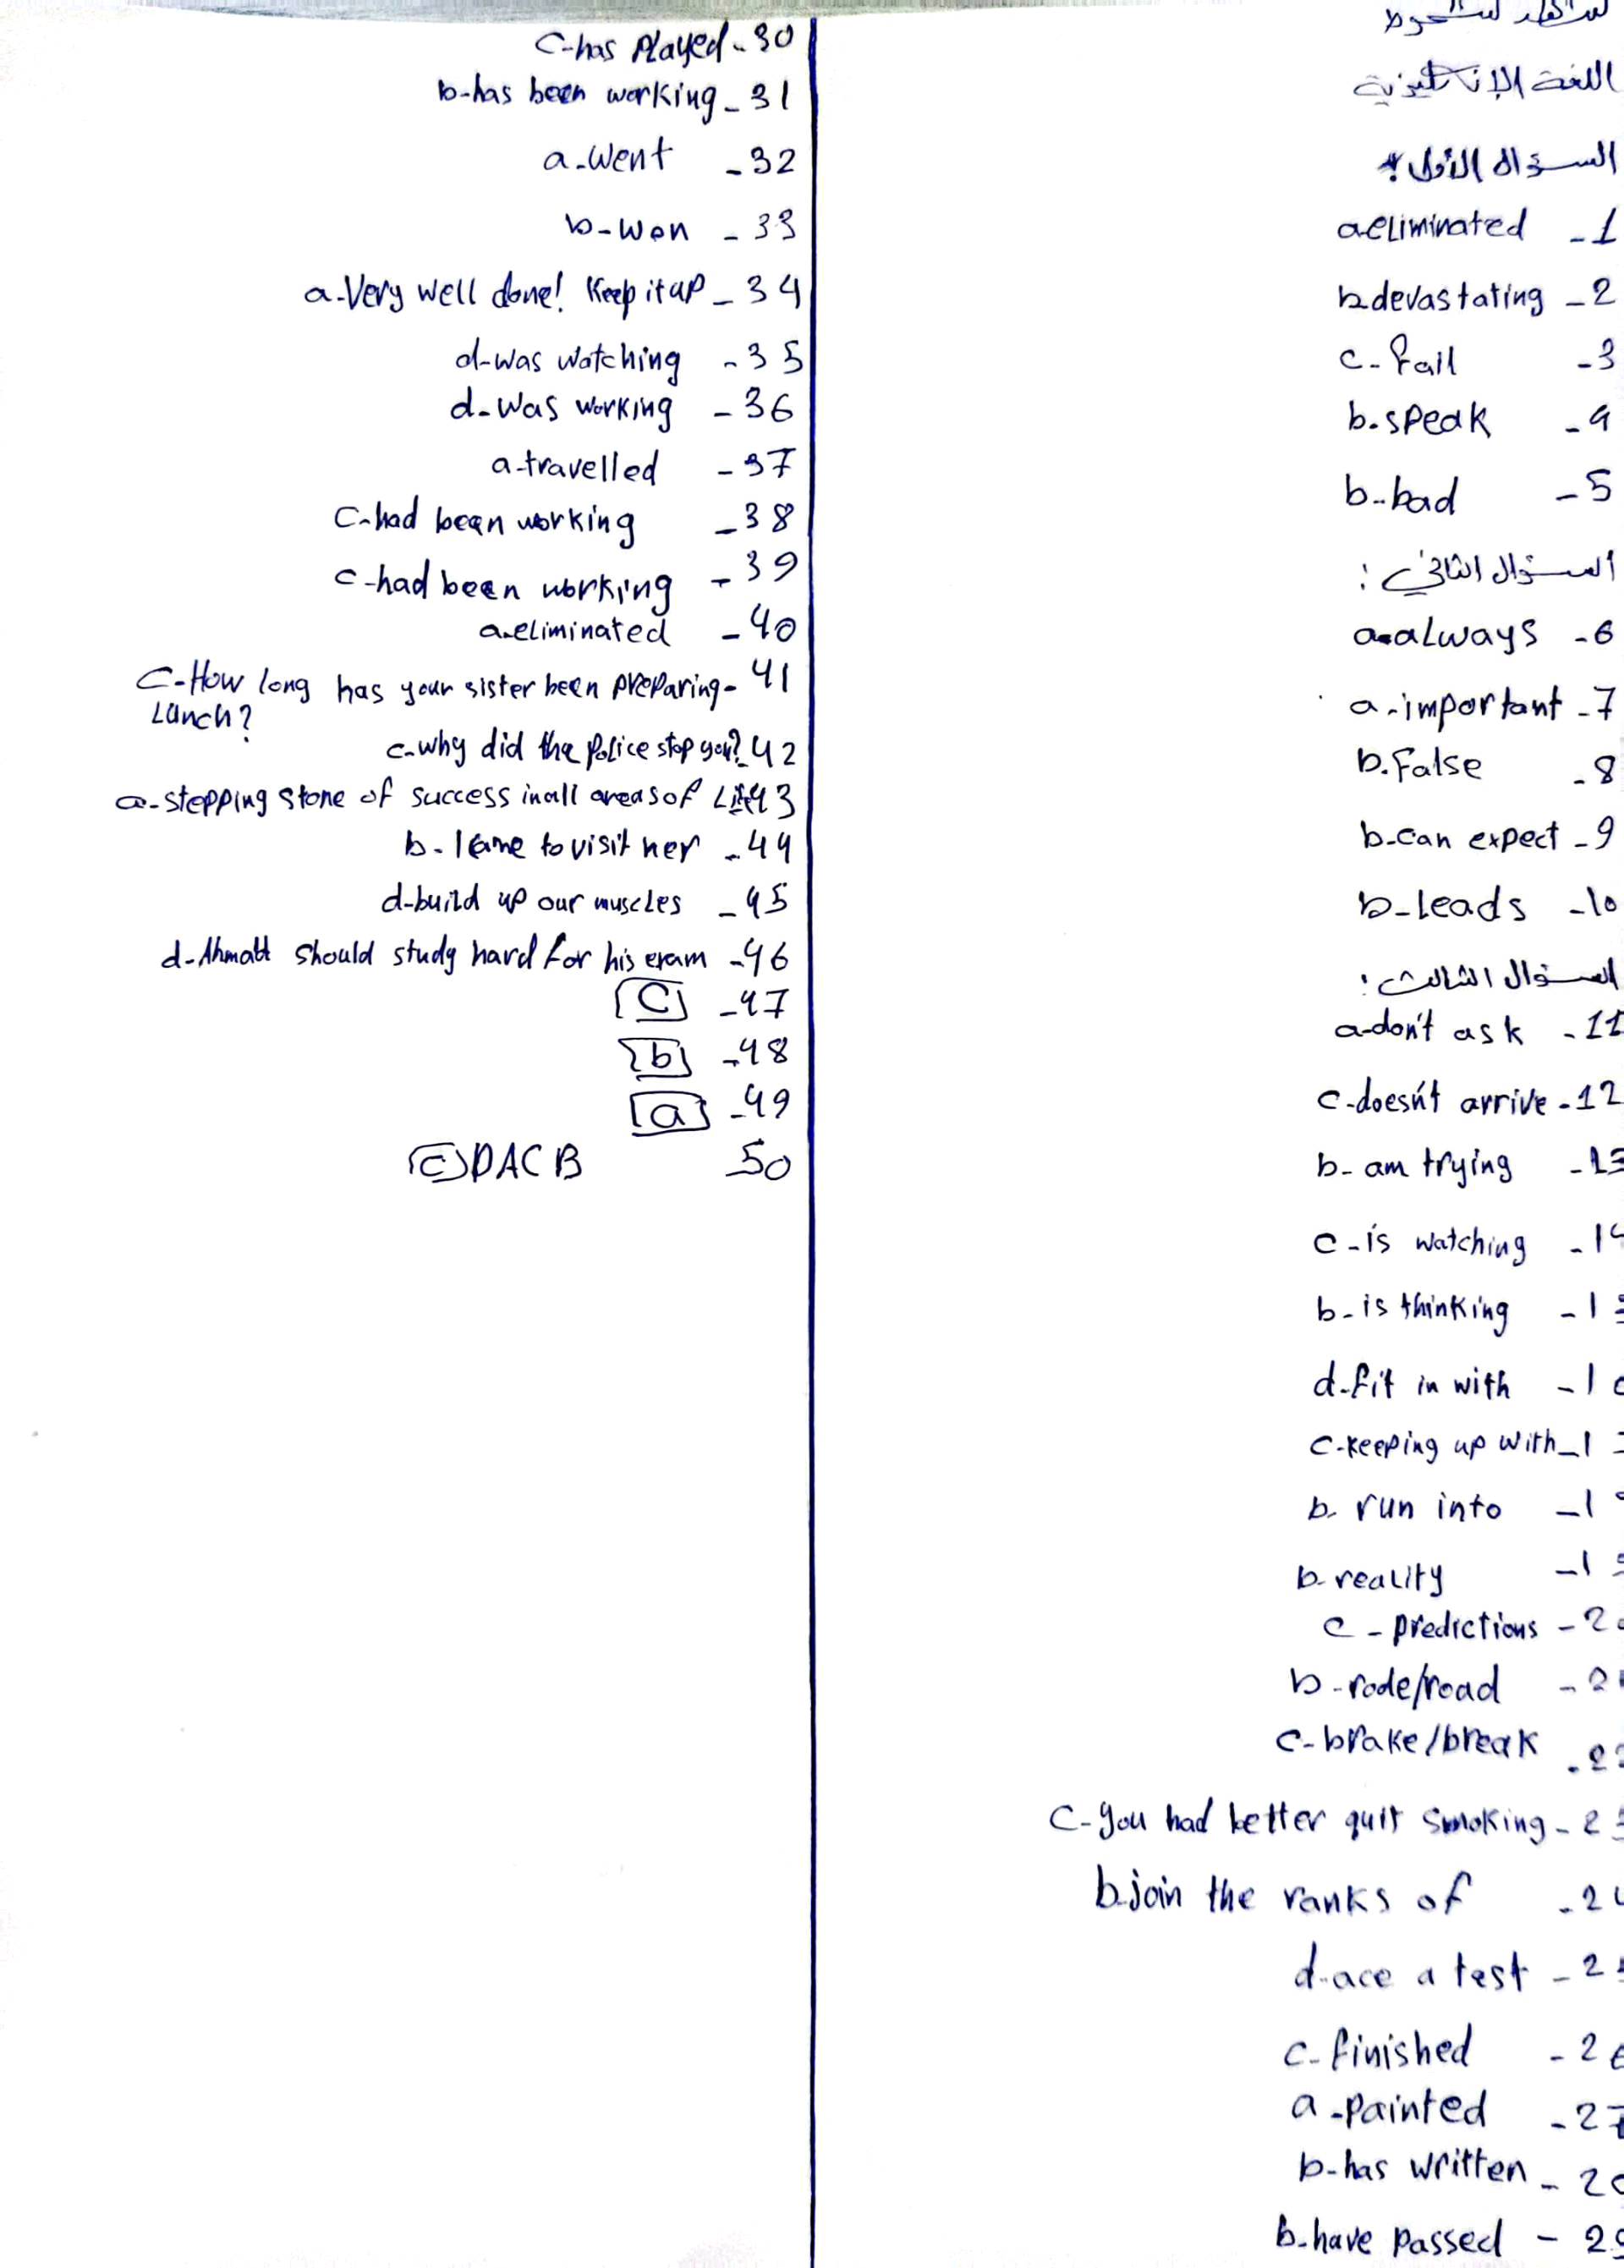 اللغة الإنكليزية
السؤال الأول:
1- a.eliminated
2- b.devastating
3- c-fail
4- b.speak
5- b-bad
السؤال الثاني:
6- a-always
7- a-important
8- b.False
9- b-can expect
10- b-leads
السؤال الثالث:
11- a-don't ask
12- c-doesn't arrive
13- b-am trying
14- c-is watching
15- b-is thinking
16- d-fit in with
17- c-keeping up with
18- b. run into
19- b-reality
20- c-predictions
21- b-rode/road
22- c-brake/break
23- c-you had better quit smoking
24- b.join the ranks of
25- d-ace a test
26- c-finished
27- a-painted
28- b-has written
29- b-have passed
30- c-has played
31- b-has been working
32- a-went
33- b-won
34- a-Very well done! Keep it up
35- d-was watching
36- d-was working
37- a-travelled
38- c-had been working
39- c-had been working
40- a-eliminated
41- c-How long has your sister been preparing
Lunch?
42- c-why did the police stop you?
43- a-stepping stone of success in all areas of Life
44- b-I came to visit her
45- d-build up our muscles
46- d- should study hard for his exam
47- C
48- b
49- a
50 c DACB